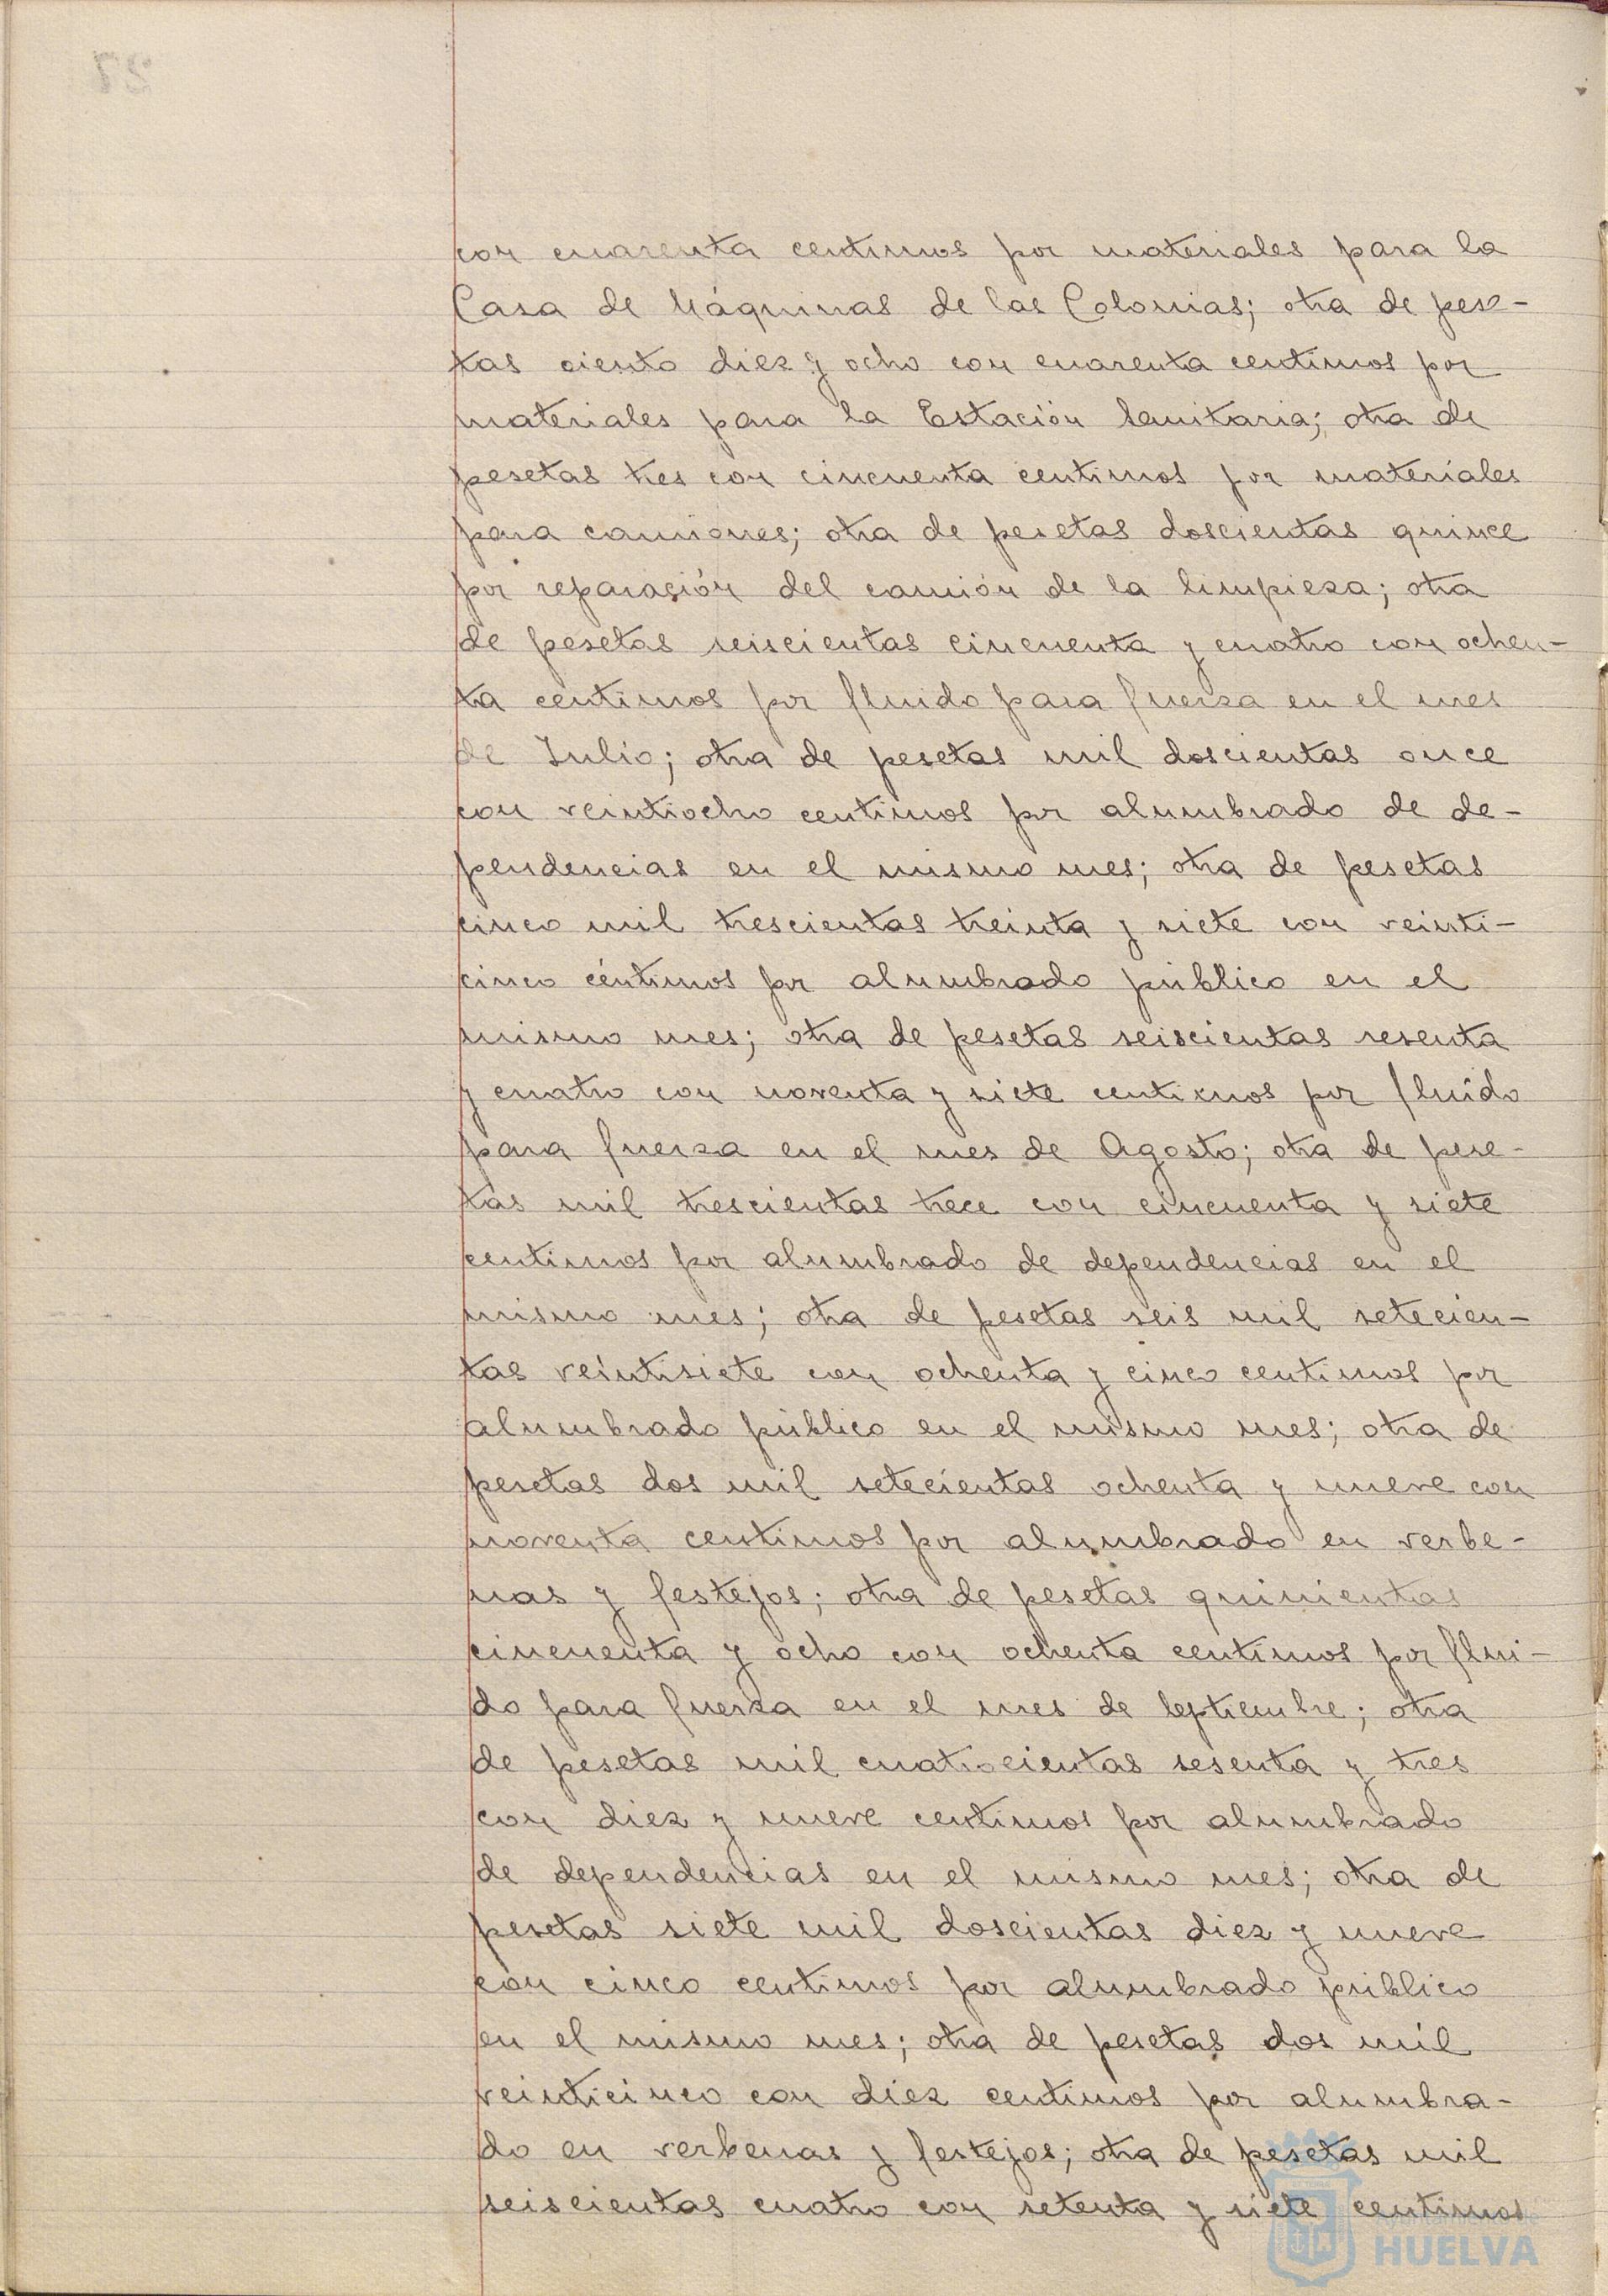 con cuarenta centimos por materiales para la
Casa de Máquinas de las Colonias; otra de pese-
tas ciento diez y ocho con cuarenta centimos por
materiales para la Estación Sanitaria; otra de
pesetas tres con cincuenta centimos por materiales
para camiones; otra de pesetas doscientas quince
por reparación del camión de la limpieza; otra
de pesetas seiscientas cincuenta y cuatro con ochen-
ta centimos por fluido para fuerza en el mes
de Julio; otra de pesetas mil doscientas once
con veintiocho centimos por alumbrado de de-
pendencias en el mismo mes; otra de pesetas
cinco mil trescientas treinta y siete con veinti-
cinco céntimos por alumbrado público en el
mismo mes; otra de pesetas seiscientas sesenta
y cuatro con noventa y siete centimos por fluido
para fuerza en el mes de Agosto; otra de pese-
tas mil trescientas trece con cincuenta y siete
centimos por alumbrado de dependencias en el
mismo mes; otra de pesetas seis mil setecien-
tas veintisiete con ochenta y cinco centimos por
alumbrado público en el mismo mes; otra de
pesetas dos mil setecientas ochenta y nueve con
noventa centimos por alumbrado en verbe-
nas y festejos; otra de pesetas quinientas
cincuenta y ocho con ochenta centimos por flui-
do para fuerza en el mes de Septiembre; otra
de pesetas mil cuatrocientas sesenta y tres
con diez y nueve centimos por alumbrado
de dependencias en el mismo mes; otra de
pesetas siete mil doscientas diez y nueve
con cinco centimos por alumbrado público
en el mismo mes; otra de pesetas dos mil
veinticinco con diez centimos por alumbra-
do en verbenas y festejos; otra de pesetas mil
seiscientas cuatro con setenta y siete centimos
HUELVA